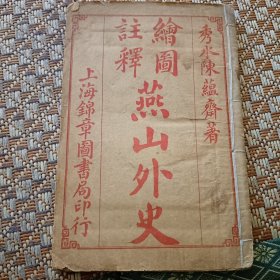 秀水陳蘊齋著
繪圖
註釋
燕山外史
上海錦章圖書局印行